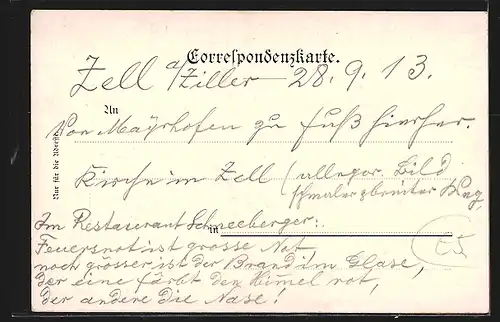 Correspondenzkarte.
Zell a/Ziller 28. 9. 13.
An
Von Mayrhofen zu Fuß hierher.
Kirche in Zell (allegor. Bild
schmaler & breiter Weg,
Im Restaurant Schneeberger:
in
Feuersnot ist grosse Not
noch grösser ist der Brand im Glase,
der eine färbt den Himel rot,
der andere die Nase!
Nur für die Adresse